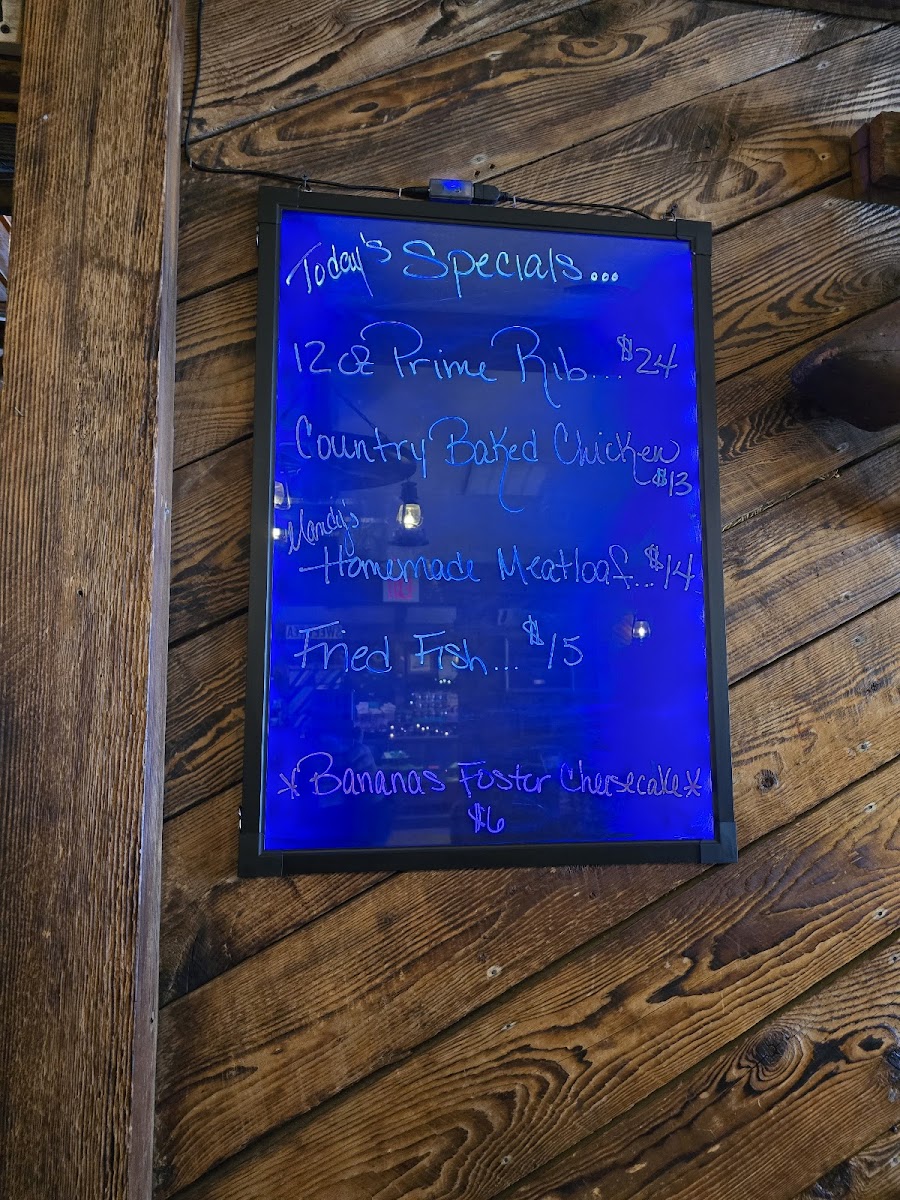 Today's Specials...
12 oz Prime Rib... $24
Country Baked Chicken
$13
Mandy's
Homemade Meatloaf... $14
Fried Fish... $15
*Bananas Foster Cheesecake*
$6